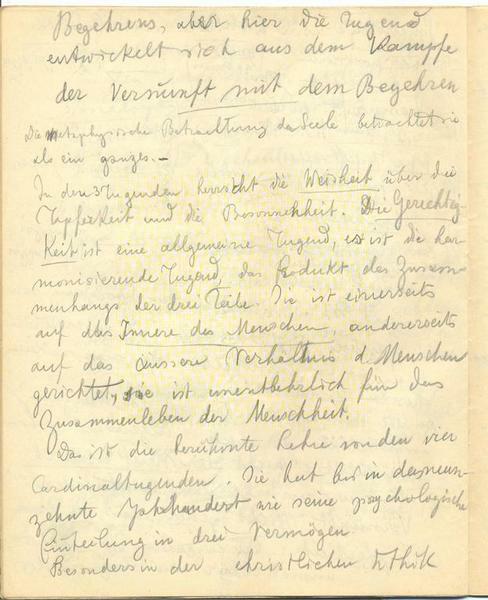 Begehrens, aber hier die Tugend
entwickelt sich aus dem Kampfe
der Vernunft mit dem Begehren
Die metaphysische Betrachtung der Seele betrachtet sie
als ein ganzes.-
In den 3 Tugenden herrscht die Weisheit über die
Tapferkeit und die Besonnenheit. Die Gerechtig-
keit ist eine allgemeine Tugend, es ist die har-
monisierende Tugend, das Produkt des Zusam-
menhangs der drei Teile. Sie ist einerseits
auf das Innere des Menschen, andererseits
auf das äussere Verhältnis d. Menschen
gerichtet, sie ist unentbehrlich für das
Zusammenleben der Menschheit.
Das ist die berühmte Lehre von den vier
Cardinaltugenden. Sie hat bis in das neun-
zehnte Jahrhundert wie seine psychologische
Einteilung in drei Vermögen
Besonders in der christlichen Ethik